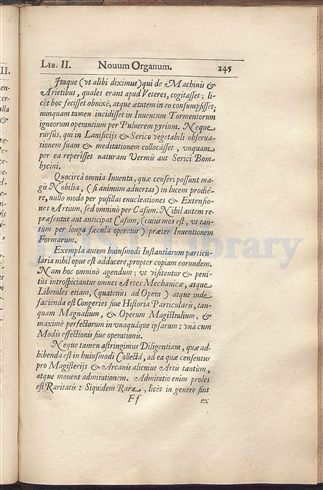 LIB. II. Nouum Organum. 245
Itaque (vt alibi diximus) qui de Machinis &
Arietibus, quales erant apud Veteres, cogitasset; li-
cèt hoc fecisset obnixè, atque ætatem in eo consumpsisset;
nunquam tamen incidisset in Inuentum Tormentorum
igneorum operantium per Puluerem pyrium. Neque
rursùs, qui in Lanificijs & Serico vegetabili obserua-
tionem suam & meditationem collocásset, vnquam
per ea reperisset naturam Vermis aut Serici Bom-
bycini.
Quocircà omnia Inuenta, quæ censeri possunt ma-
gis Nobilia, (si animum aduertas) in lucem prodiê-
re, nullo modo per pusillas enucleationes & Extensio-
nes Artium, sed omninò per Casum. Nihil autem re-
præsentat aut anticipat Casum, (cuius mos est, vt tan-
tum per longa sæcula operetur) præter Inuentionem
Formarum.
Exempla autem huiusmodi Instantiarum particu-
laria nihil opus est adducere, propter copiam eorundem.
Nam hoc omninò agendum; vt visitentur & peni-
tùs introspiciantur omnes Artes Mechanicæ, atque
Liberales etiam, (quatenùs ad Opera) atque inde
facienda est Congeries siue Historia Particularis, tan-
quam Magnalium, & Operum Magistralium, &
maximè perfectorum in vnaquâque ipsarum: vnà cum
Modis effectionis siue operationis.
Neque tamen astringimus Diligentiam, quæ ad-
hibenda est in huiusmodi Collectâ, ad ea quæ censentur
pro Magisterijs & Arcanis alicuius Artis tantùm,
atque mouent admirationem. Admiratio enim proles
est Raritatis: Siquidem Rara, licèt in genere sint
Ff ex
Library